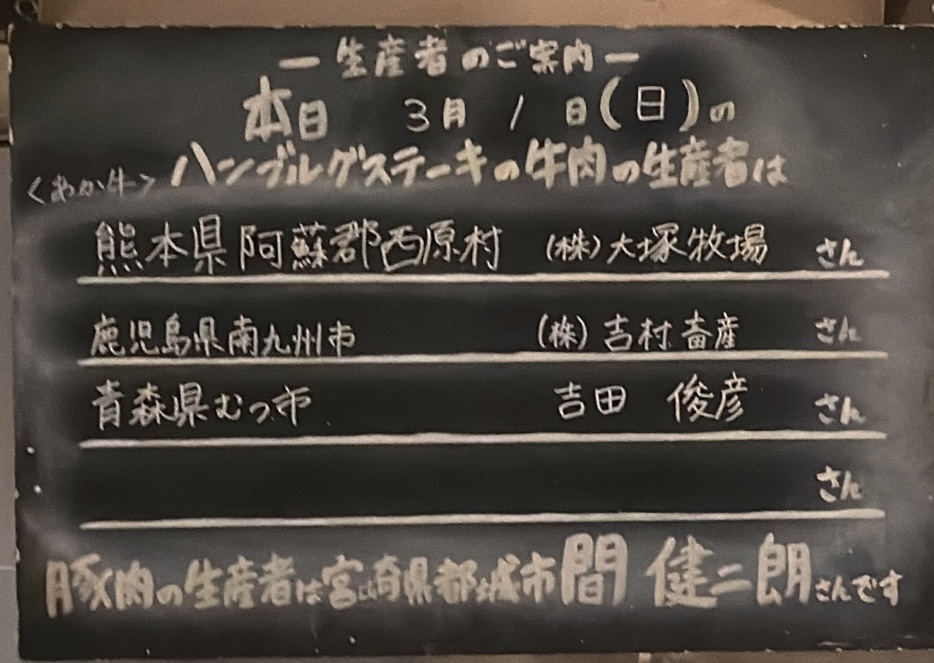 ー生産者のご案内ー
本日 3月 1 日(日)の
ハンブルグステーキの牛肉の生産者は
<あか牛>
熊本県阿蘇郡西原村 (株)大塚牧場 さん
鹿児島県南九州市 (株)吉村畜産 さん
青森県むつ市 吉田 俊彦 さん
さん
豚肉の生産者は宮崎県都城市間 健二朗さんです